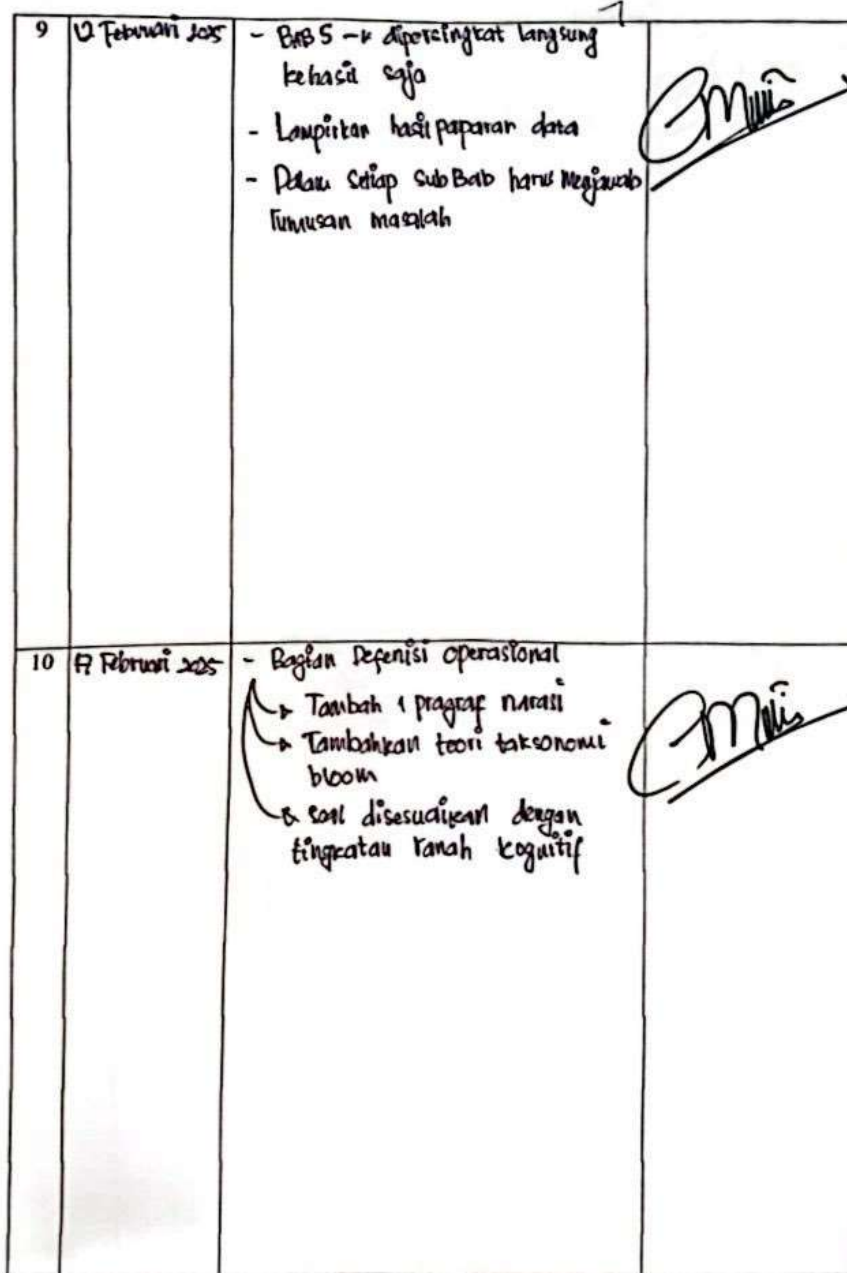 9
12 Februari 2025
- BAB 5 → dipersingkat langsung
kehasil saja
- Lampirkan hasil paparan data
- Dalam setiap sub Bab harus menjawab
rumusan masalah
10
17 Februari 2025
- Bagian Defenisi operasional
→ Tambah 1 pragraf narasi
→ Tambahkan teori taksonomi
bloom
→ soal disesuaikan dengan
tingkatan ranah kognitif